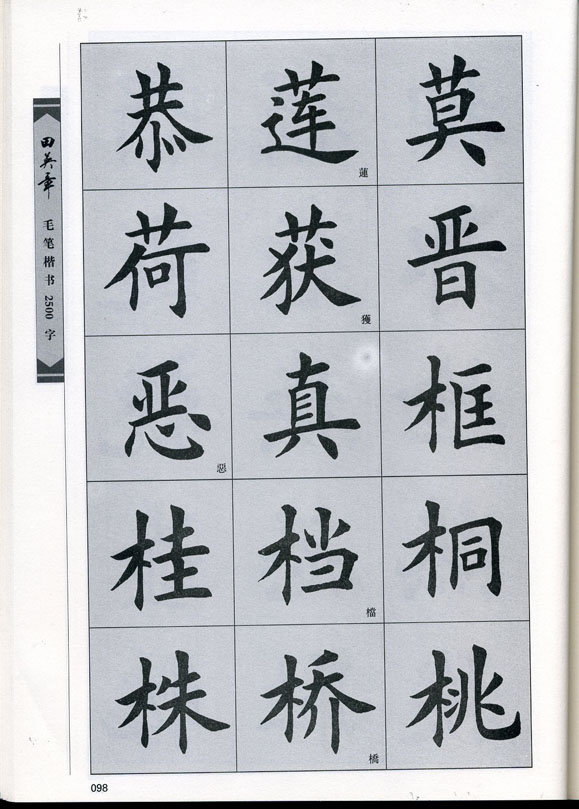 田英章 毛笔楷书2500字
恭 莲 蓮 莫
荷 获 獲 晋
恶 惡 真 框
桂 档 檔 桐
株 桥 橋 桃
098